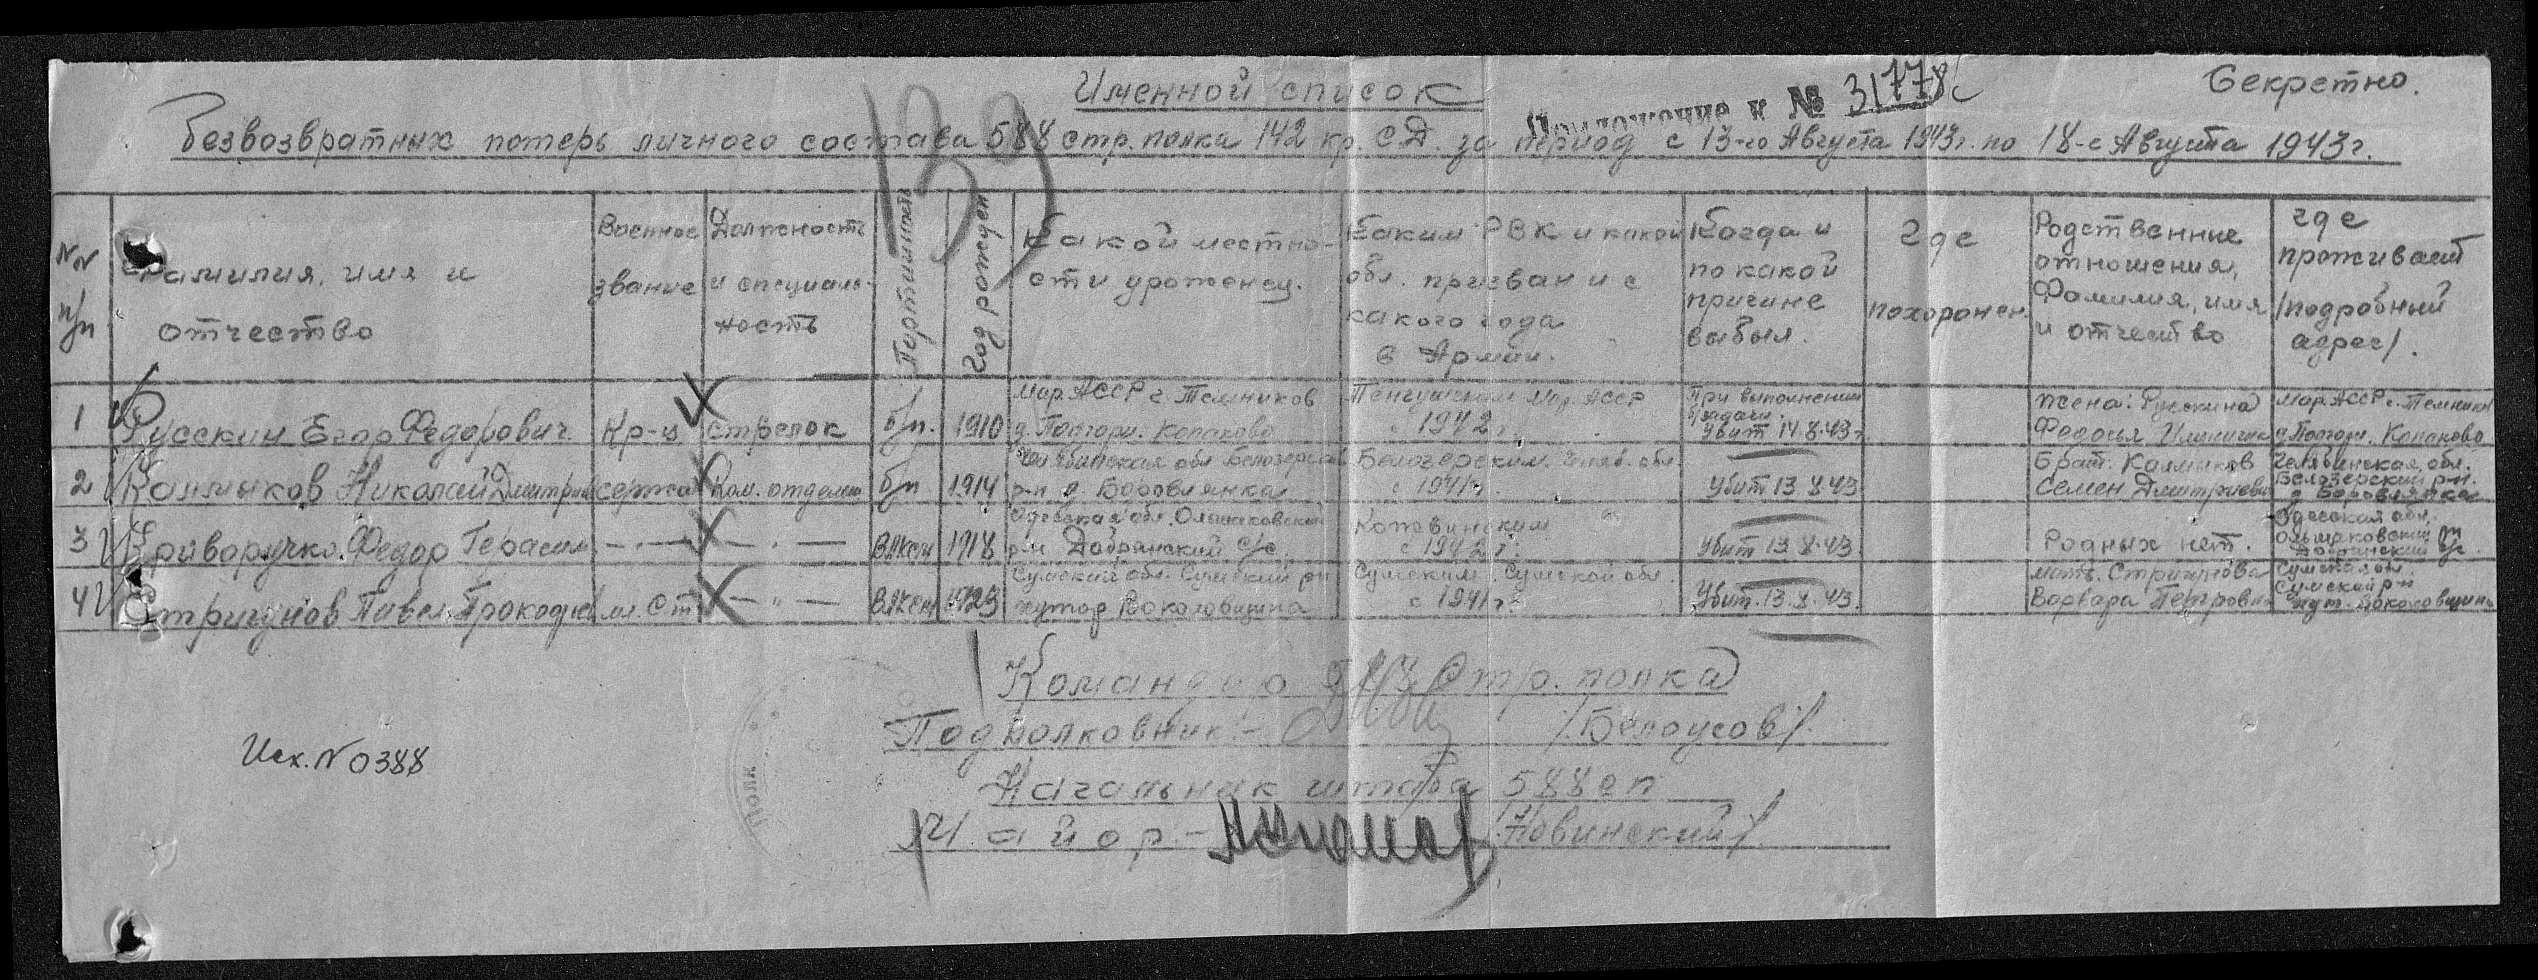 Секретно.
Именной список
Приложение к № 31778с
139
безвозвратных потерь личного состава 588 стр. полка 142 кр. СД. за период с 13-го Августа 1943г. по 18-е Августа 1943г.
NN п/п
Фамилия, имя и отчество
Военное звание
Должность и специальность
Партийность
Год рожден
Какой местности уроженец.
Каким РВК и какой обл. призван и с какого года в Армии.
Когда и по какой причине выбыл.
Где похоронен.
Родственные отношения, Фамилия, имя и отчество
где проживает /подробный адрес/.
1 Русскин Егор Федорович Кр-ц стрелок б/п. 1910 Мор. АССР г. Темников Мор. АССР с 1942 г. При выполнении задачи убит 14.8.43г жена: Русскина Федосья Мор. АССР г. Темников
2 Калмыков Николай Дмитрие сержа Ком. отделен б/п 1914 Челябинская обл Белозерский р-н д. Боровлянка Белозерским Челяб. обл. с 1941г. Убит 13.8.43 Брат: Калмыков Семен Дмитриевич Челябинская обл. Белозерский р-н. д. Боровлянка
3 Криворучко Федор Герасим —"— —"— ВЛКСМ 1918 Одесская обл. р-н Добрянский с/с с 1942 г. Убит 13.8.43. Родных нет. Одесская обл. Добрянский с/с.
4 Стригунов Павел Прокофье мл. с-т —"— ВЛКСМ 1923 Сумский обл. Сумский р-н хутор Сумским. Сумской обл. с 1941 г. Убит. 13.8.43. мать. Стригунова Варвара Петровн Сумская обл. Сумский р-н хут.
Командир 588 Стр. полка
Подполковник:- /Белоусов/.
Исх. N 0388
полк
Начальник штаба 588 сп
Майор- /Новинский/.